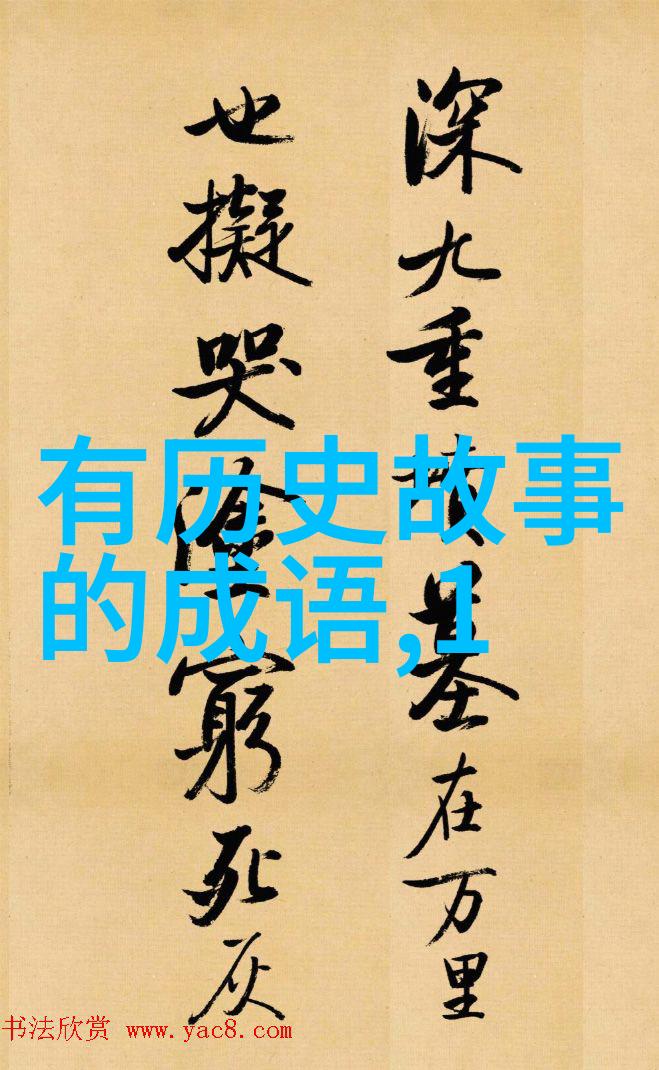 深九重墳墓在万里
也擬哭塗窮死灰
有历史故事
的成语,1
书法欣赏 www.yac8.com